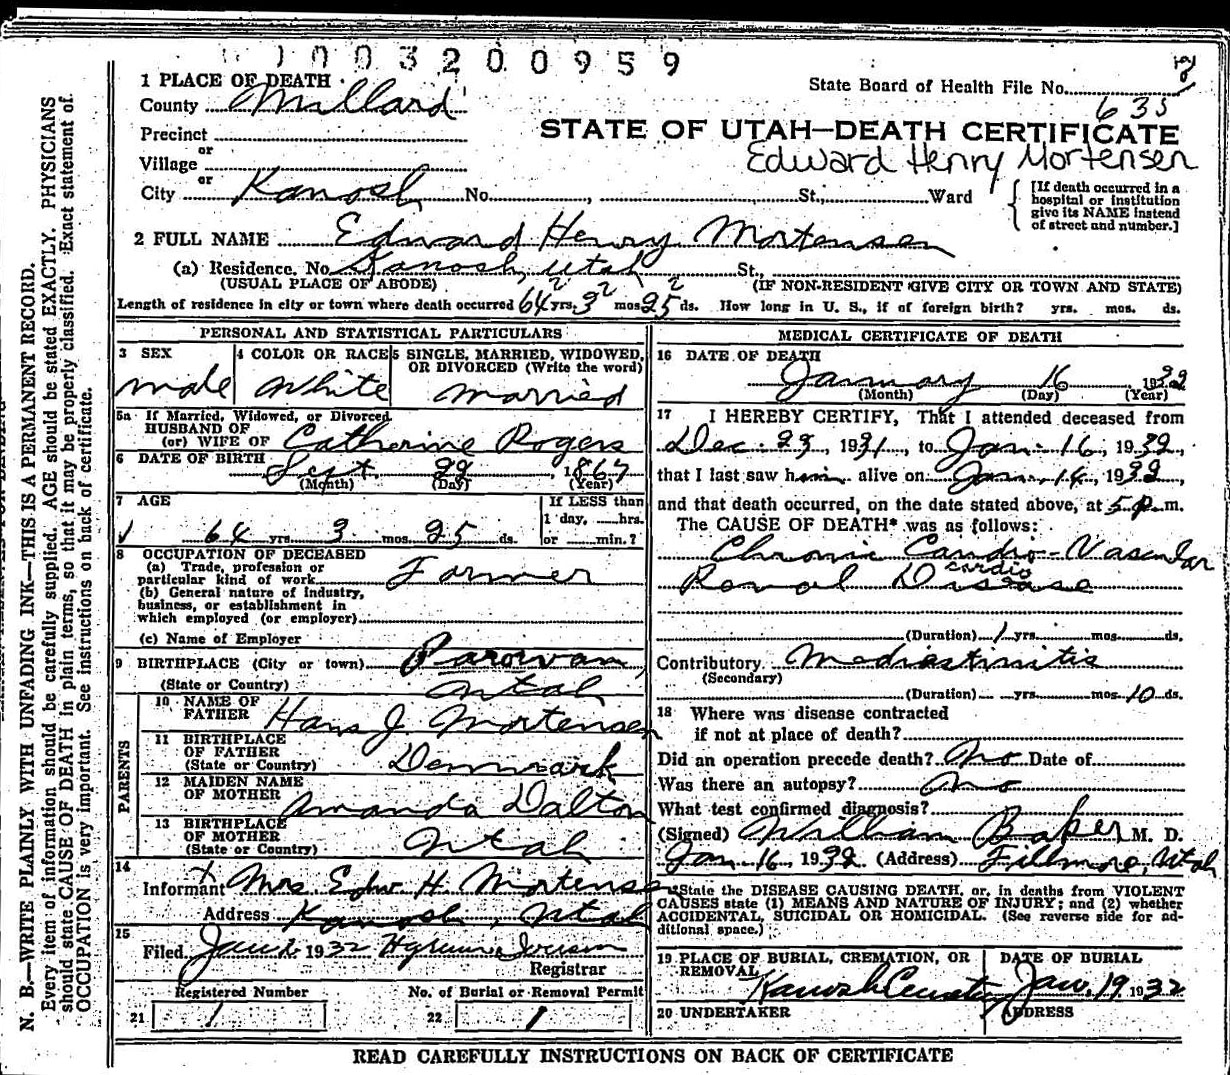 1003200959
1 PLACE OF DEATH
State Board of Health File No. 635
County Millard
STATE OF UTAH—DEATH CERTIFICATE
Precinct
or
Edward Henry Mortensen
Village
or
City Kanosh No. , St., Ward
[If death occurred in a
hospital or institution
give its NAME instead
of street and number.]
2 FULL NAME Edward Henry Mortensen
(a) Residence, No. Kanosh, Utah St.,
(USUAL PLACE OF ABODE) (IF NON-RESIDENT GIVE CITY OR TOWN AND STATE)
Length of residence in city or town where death occurred 64 yrs. 3 mos. 25 ds. How long in U. S., if of foreign birth? yrs. mos. ds.
PERSONAL AND STATISTICAL PARTICULARS
3 SEX 4 COLOR OR RACE 5 SINGLE, MARRIED, WIDOWED,
OR DIVORCED (Write the word)
male White married
5a If Married, Widowed, or Divorced
HUSBAND OF
(or) WIFE OF Catherine Rogers
6 DATE OF BIRTH Sept 22, 1867
(Month) (Day) (Year)
7 AGE If LESS than
1 day, hrs.
64 yrs. 3 mos. 25 ds. or min.?
8 OCCUPATION OF DECEASED
(a) Trade, profession or
particular kind of work Farmer
(b) General nature of Industry,
business, or establishment in
which employed (or employer)
(c) Name of Employer
9 BIRTHPLACE (City or town) Parowan,
(State or Country) Utah
PARENTS
10 NAME OF
FATHER Hans J. Mortensen
11 BIRTHPLACE
OF FATHER
(State or Country) Denmark
12 MAIDEN NAME
OF MOTHER Amanda Dalton
13 BIRTHPLACE
OF MOTHER
(State or Country) Utah
14
Informant Mrs. Edw H. Mortensen
Address Kanosh, Utah
15
Filed 1932
Registrar
Registered Number No. of Burial or Removal Permit
21 1 22 1
MEDICAL CERTIFICATE OF DEATH
16 DATE OF DEATH
January 16 1932
(Month) (Day) (Year)
17 I HEREBY CERTIFY, That I attended deceased from
Dec. 23, 1931, to Jan. 16, 1932,
that I last saw him alive on Jan. 14, 1932,
and that death occurred, on the date stated above, at 5 p. m.
The CAUSE OF DEATH* was as follows:
Chronic Cardio-Vascular
cardio
Renal Disease
(Duration) 1 yrs. mos. ds.
Contributory Mediastinitis
(Secondary)
(Duration) yrs. mos. 10 ds.
18 Where was disease contracted
if not at place of death?
Did an operation precede death? No Date of
Was there an autopsy? no
What test confirmed diagnosis?
(Signed) William Baker M. D.
Jan. 16, 1932 (Address) Fillmore, Utah
*State the DISEASE CAUSING DEATH, or, in deaths from VIOLENT
CAUSES state (1) MEANS AND NATURE OF INJURY; and (2) whether
ACCIDENTAL, SUICIDAL OR HOMICIDAL. (See reverse side for ad-
ditional space.)
19 PLACE OF BURIAL, CREMATION, OR
REMOVAL Kanosh Cemetery
DATE OF BURIAL
Jan. 19 1932
20 UNDERTAKER ADDRESS
READ CAREFULLY INSTRUCTIONS ON BACK OF CERTIFICATE
N. B.—WRITE PLAINLY WITH UNFADING INK—THIS IS A PERMANENT RECORD.
Every item of information should be carefully supplied. AGE should be stated EXACTLY. PHYSICIANS
should state CAUSE OF DEATH in plain terms, so that it may be properly classified. Exact statement of
OCCUPATION is very important. See instructions on back of certificate.